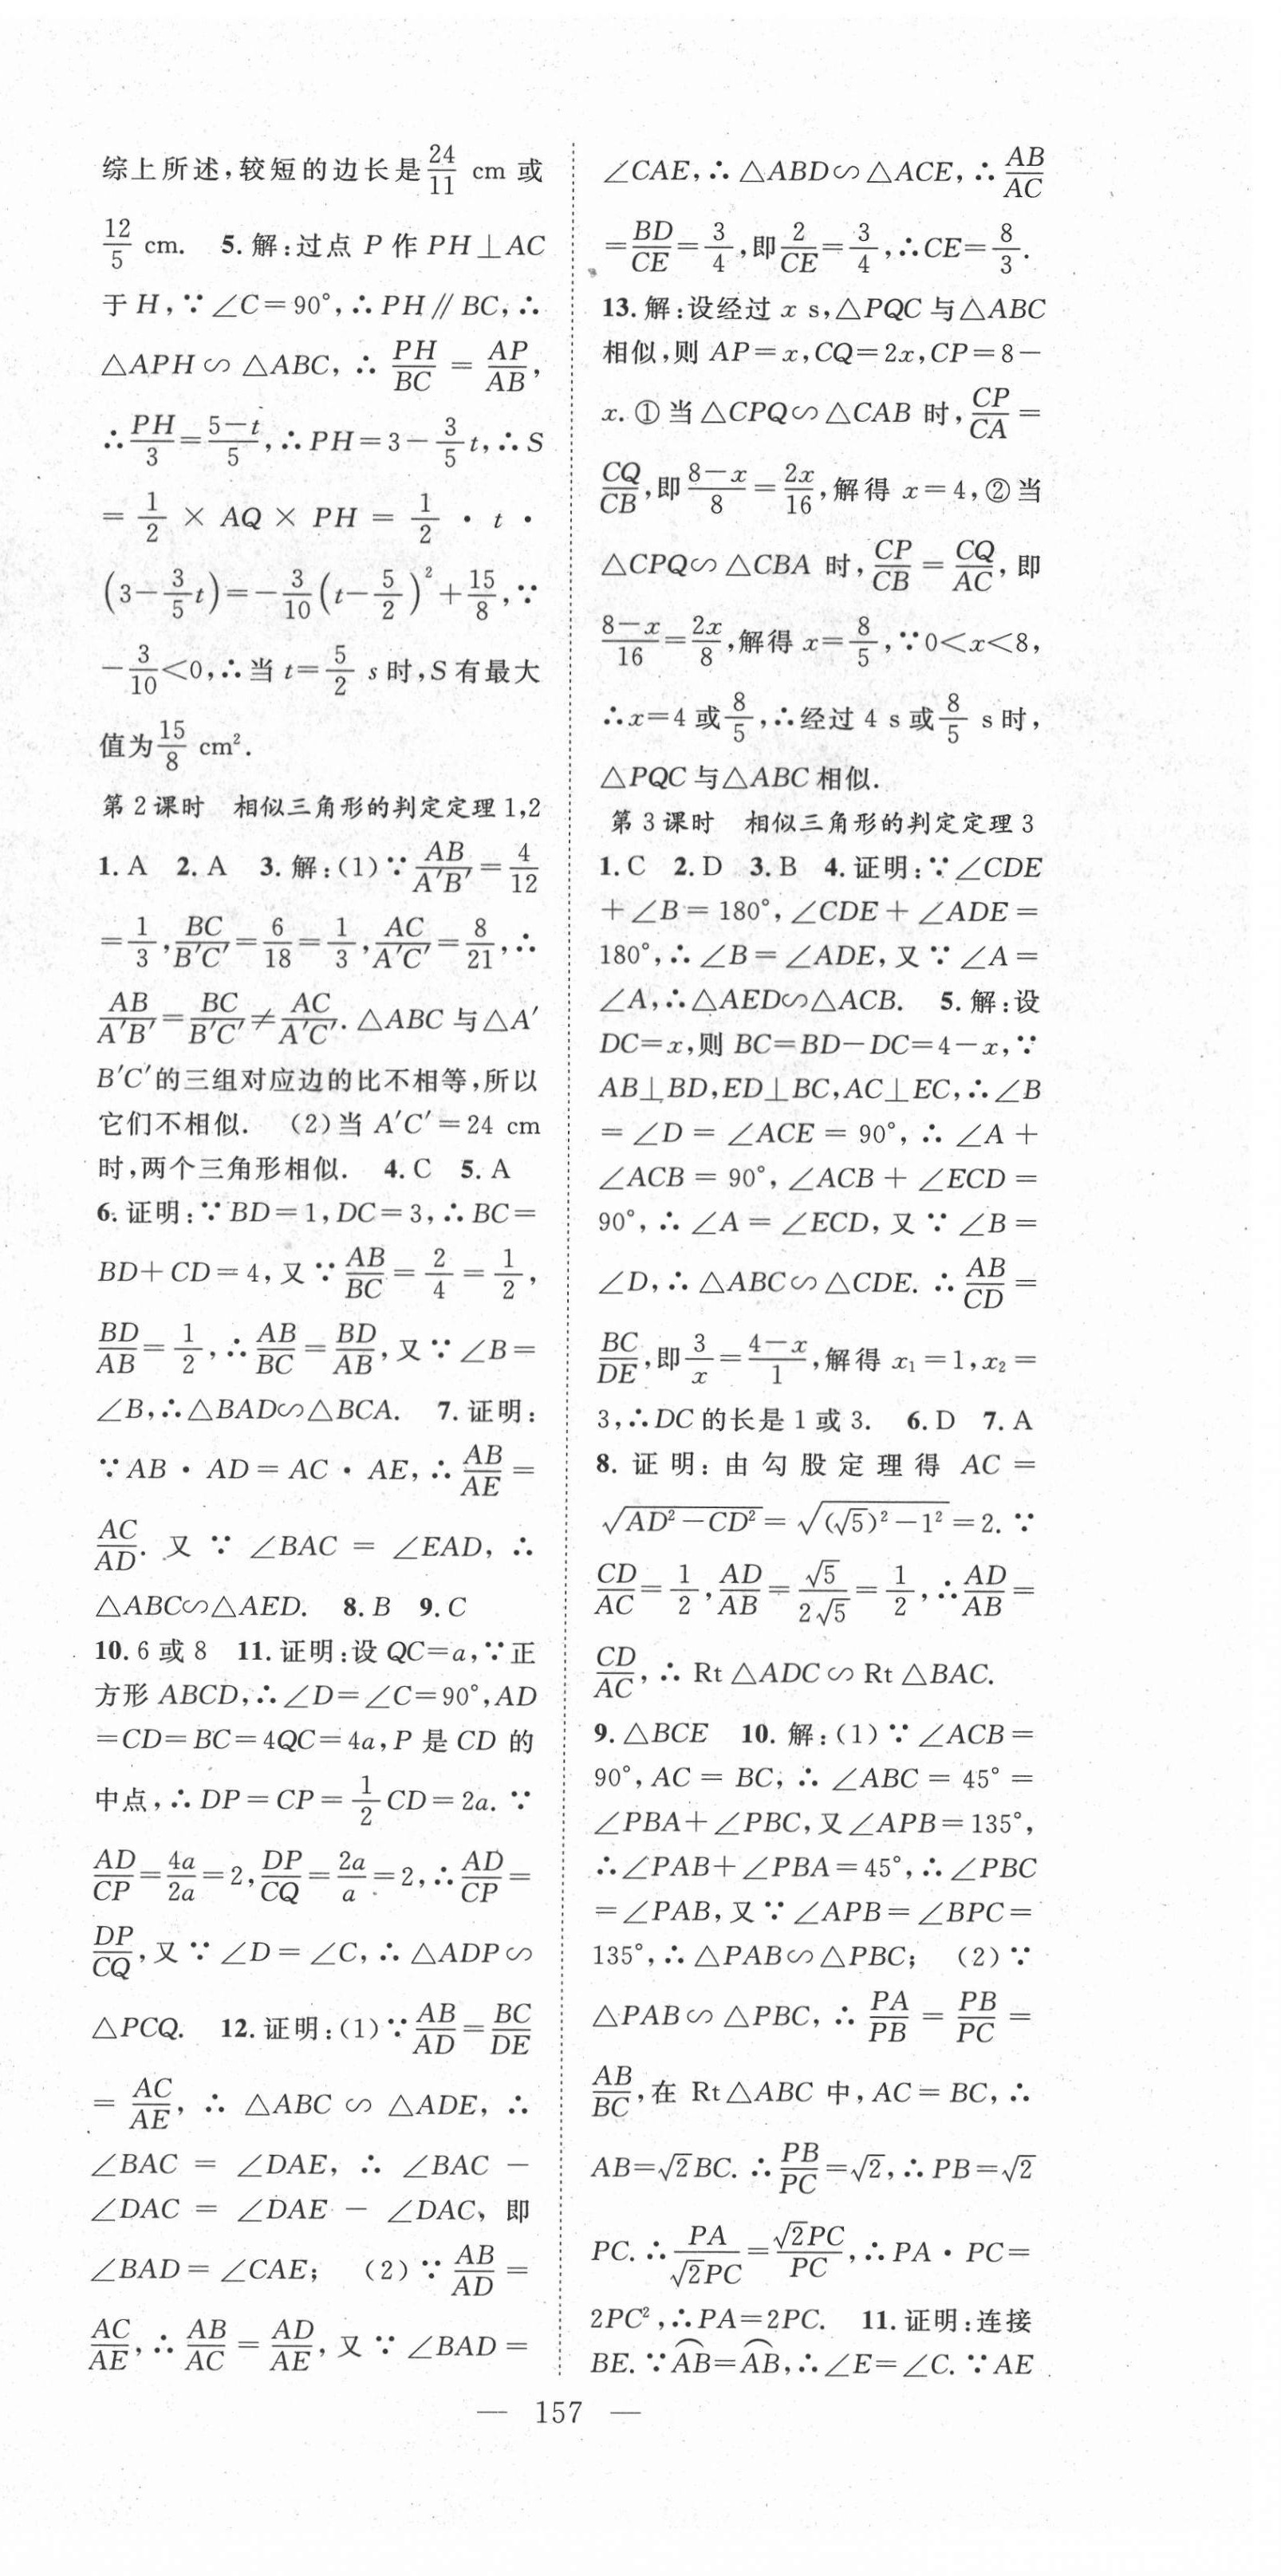 综上所述,较短的边长是24/11 cm 或
12/5 cm. 5.解:过点 P 作 PH⊥AC
于 H,∵∠C=90°,∴PH∥BC,∴
△APH∽△ABC,∴PH/BC=AP/AB,
∴PH/3=(5-t)/5,∴PH=3-3/5t,∴S
=1/2×AQ×PH=1/2·t·
(3-3/5t)=-3/10(t-5/2)²+15/8,∵
-3/10<0,∴当 t=5/2 s时,S有最大
值为15/8 cm².
第2课时 相似三角形的判定定理1,2
1.A 2.A 3.解:(1)∵AB/A′B′=4/12
=1/3,BC/B′C′=6/18=1/3,AC/A′C′=8/21,∴
AB/A′B′=BC/B′C′≠AC/A′C′.△ABC与△A′
B′C′的三组对应边的比不相等,所以
它们不相似. (2)当 A′C′=24 cm
时,两个三角形相似. 4.C 5.A
6.证明:∵BD=1,DC=3,∴BC=
BD+CD=4,又∵AB/BC=2/4=1/2,
BD/AB=1/2,∴AB/BC=BD/AB,又∵∠B=
∠B,∴△BAD∽△BCA. 7.证明:
∵AB·AD=AC·AE,∴AB/AE=
AC/AD.又∵∠BAC=∠EAD,∴
△ABC∽△AED. 8.B 9.C
10.6或8 11.证明:设QC=a,∵正
方形ABCD,∴∠D=∠C=90°,AD
=CD=BC=4QC=4a,P是CD的
中点,∴DP=CP=1/2CD=2a.∵
AD/CP=4a/2a=2,DP/CQ=2a/a=2,∴AD/CP=
DP/CQ,又∵∠D=∠C,∴△ADP∽
△PCQ. 12.证明:(1)∵AB/AD=BC/DE
=AC/AE,∴△ABC∽△ADE,∴
∠BAC=∠DAE,∴∠BAC-
∠DAC=∠DAE-∠DAC,即
∠BAD=∠CAE; (2)∵AB/AD=
AC/AE,∴AB/AC=AD/AE,又∵∠BAD=
∠CAE,∴△ABD∽△ACE,∴AB/AC
=BD/CE=3/4,即2/CE=3/4,∴CE=8/3.
13.解:设经过 x s,△PQC与△ABC
相似,则 AP=x,CQ=2x,CP=8-
x.①当△CPQ∽△CAB时,CP/CA=
CQ/CB,即(8-x)/8=2x/16,解得 x=4,②当
△CPQ∽△CBA时,CP/CB=CQ/AC,即
(8-x)/16=2x/8,解得 x=8/5,∵0<x<8,
∴x=4或8/5,∴经过4 s或8/5 s时,
△PQC与△ABC相似.
第3课时 相似三角形的判定定理3
1.C 2.D 3.B 4.证明:∵∠CDE
+∠B=180°,∠CDE+∠ADE=
180°,∴∠B=∠ADE,又∵∠A=
∠A,∴△AED∽△ACB. 5.解:设
DC=x,则BC=BD-DC=4-x,∵
AB⊥BD,ED⊥BC,AC⊥EC,∴∠B
=∠D=∠ACE=90°,∴∠A+
∠ACB=90°,∠ACB+∠ECD=
90°,∴∠A=∠ECD,又∵∠B=
∠D,∴△ABC∽△CDE.∴AB/CD=
BC/DE,即3/x=(4-x)/1,解得 x₁=1,x₂=
3,∴DC的长是1或3. 6.D 7.A
8.证明:由勾股定理得 AC=
√(AD²-CD²)=√((√5)²-1²)=2.∵
CD/AC=1/2,AD/AB=√5/2√5=1/2,∴AD/AB=
CD/AC,∴Rt△ADC∽Rt△BAC.
9.△BCE 10.解:(1)∵∠ACB=
90°,AC=BC,∴∠ABC=45°=
∠PBA+∠PBC,又∠APB=135°,
∴∠PAB+∠PBA=45°,∴∠PBC
=∠PAB,又∵∠APB=∠BPC=
135°,∴△PAB∽△PBC; (2)∵
△PAB∽△PBC,∴PA/PB=PB/PC=
AB/BC,在Rt△ABC中,AC=BC,∴
AB=√2BC.∴PB/PC=√2,∴PB=√2
PC.∴PA/√2PC=√2PC/PC,∴PA·PC=
2PC²,∴PA=2PC. 11.证明:连接
BE.∵A͡B=A͡B,∴∠E=∠C.∵AE
— 157 —